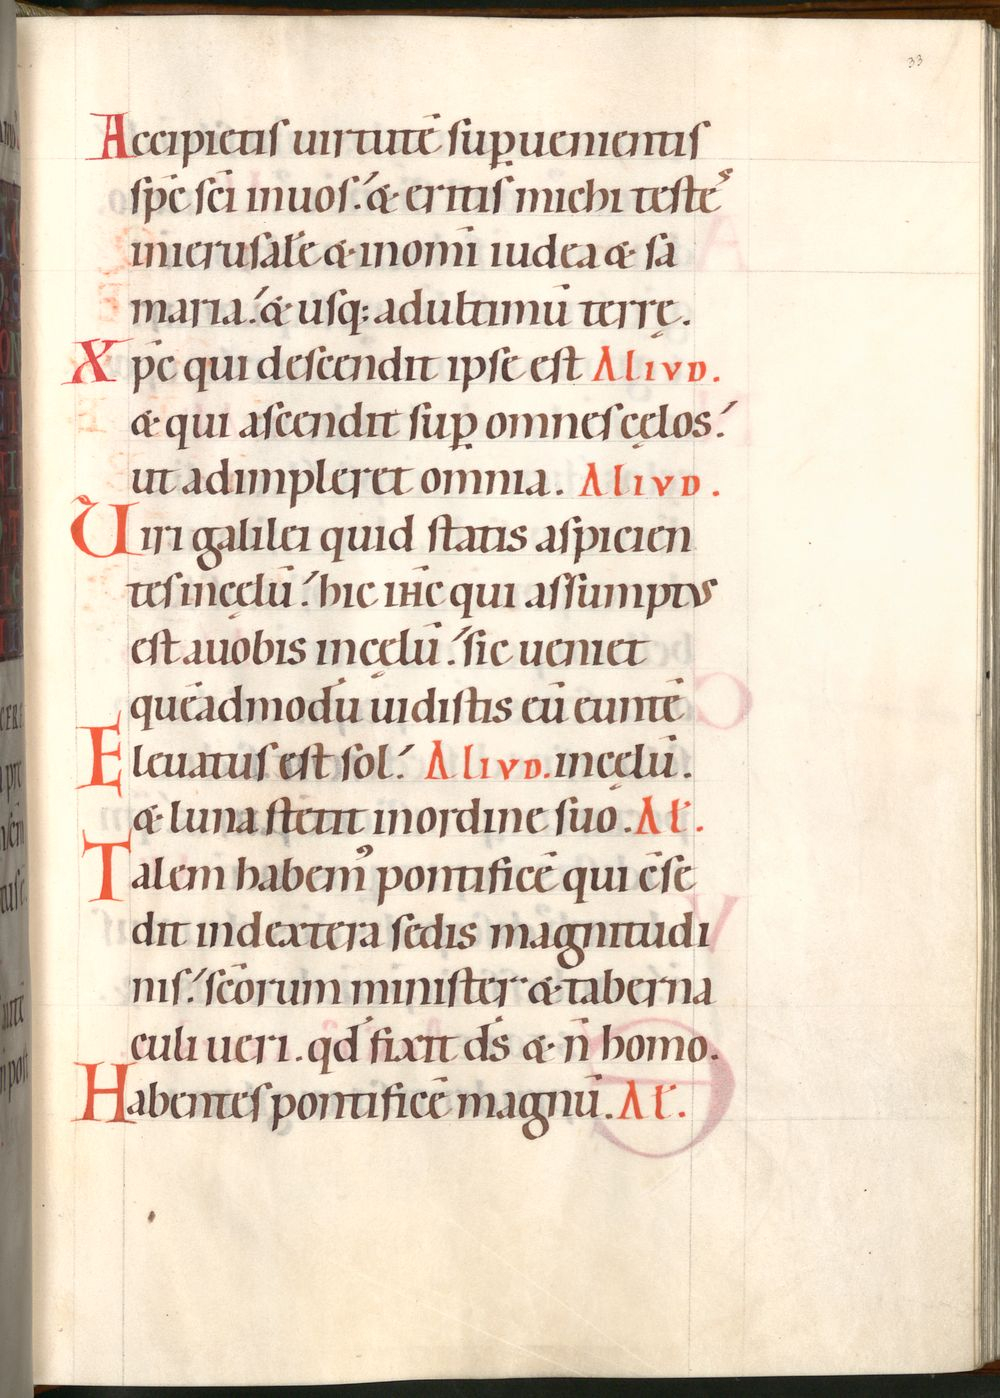 33
Accipietis uirtutē suꝑuenientis
sp̄c sc̄i inuos: & eritis michi testes
inierusalē & inomī iudea & sa
maria: & usq; adultimū terrę.
Xp̄c qui descendit ipse est Aliud.
& qui ascendit suꝑ omnes cęlos:
ut adimpleret omnia. Aliud.
Uiri galilei quid statis aspicien
tes incęlū: hic ih̄c qui assumptus
est auobis incęlū: sic ueniet
quēadmodū uidistis eū euntē
Eleuatus est sol: Aliud. incęlū.
& luna stetit inordine suo. Al̄.
Talem habem᾽ pontificē qui c̄se
dit indextera sedis magnitudi
nis: sc̄orum minister & taberna
culi ueri. qd̄ fixit d̄s & n̄ homo.
Habentes pontificē magnū. Al̄.